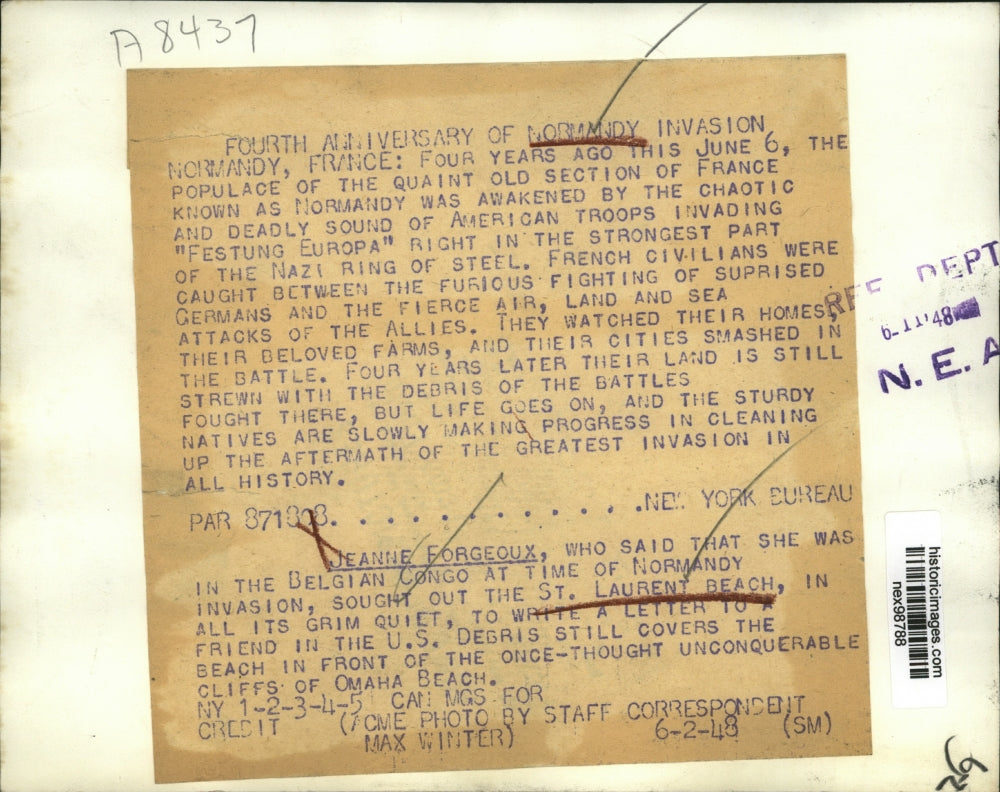 A 8437
FOURTH ANNIVERSARY OF NORMANDY INVASION
NORMANDY, FRANCE: FOUR YEARS AGO THIS JUNE 6, THE
POPULACE OF THE QUAINT OLD SECTION OF FRANCE
KNOWN AS NORMANDY WAS AWAKENED BY THE CHAOTIC
AND DEADLY SOUND OF AMERICAN TROOPS INVADING
"FESTUNG EUROPA" RIGHT IN THE STRONGEST PART
OF THE NAZI RING OF STEEL. FRENCH CIVILIANS WERE
CAUGHT BETWEEN THE FURIOUS FIGHTING OF SUPRISED
GERMANS AND THE FIERCE AIR, LAND AND SEA
ATTACKS OF THE ALLIES. THEY WATCHED THEIR HOMES,
THEIR BELOVED FARMS, AND THEIR CITIES SMASHED IN
THE BATTLE. FOUR YEARS LATER THEIR LAND IS STILL
STREWN WITH THE DEBRIS OF THE BATTLES
FOUGHT THERE, BUT LIFE GOES ON, AND THE STURDY
NATIVES ARE SLOWLY MAKING PROGRESS IN CLEANING
UP THE AFTERMATH OF THE GREATEST INVASION IN
ALL HISTORY.
PAR 871808. . . . . . . . . . . . .NEW YORK BUREAU
JEANNE FORGEOUX, WHO SAID THAT SHE WAS
IN THE BELGIAN CONGO AT TIME OF NORMANDY
INVASION, SOUGHT OUT THE ST. LAURENT BEACH, IN
ALL ITS GRIM QUIET, TO WRITE A LETTER TO A
FRIEND IN THE U.S. DEBRIS STILL COVERS THE
BEACH IN FRONT OF THE ONCE-THOUGHT UNCONQUERABLE
CLIFFS OF OMAHA BEACH.
NY 1-2-3-4-5 CAN MGS FOR
CREDIT (ACME PHOTO BY STAFF CORRESPONDENT
MAX WINTER) 6-2-48 (SM)
REF DEPT
6-11-48
N. E. A
historicimages.com
nex98788